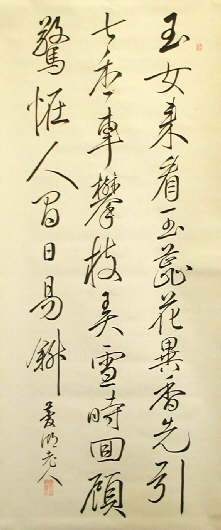 玉女来看玉蕊花異香先引
七香車攀枝弄雪時回顧
驚恠人間日易斜
菱湖老人